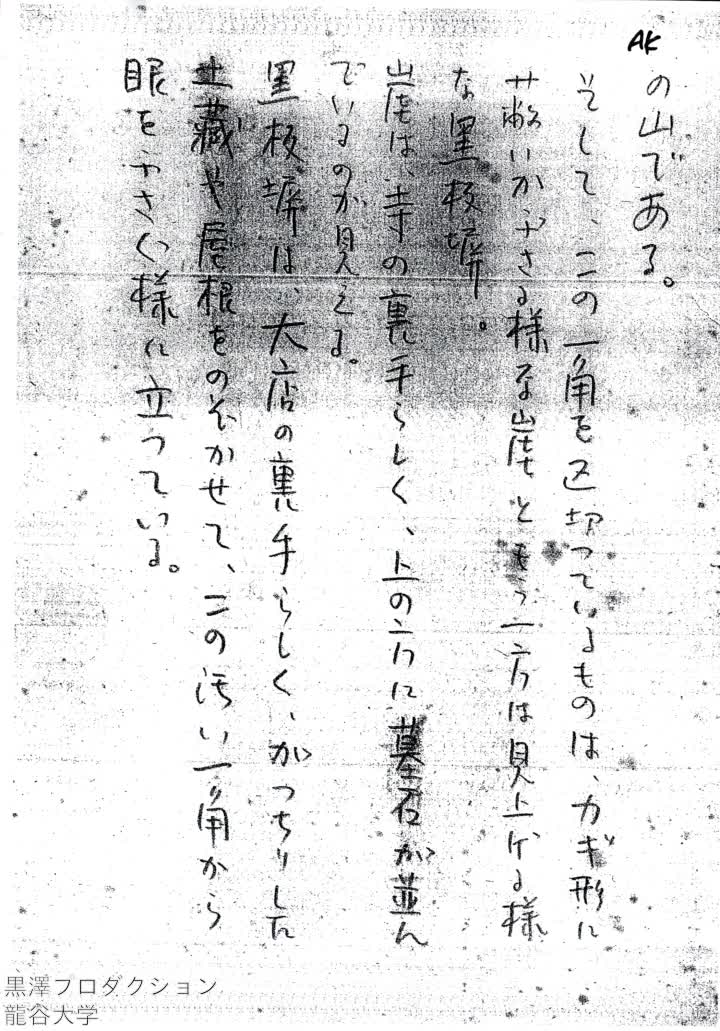 AK
の山である。
そして、この一角を区切っているものは、カギ形に
蔽いかぶさる様な崖ともう一方は見上げる様
な黒板塀。
崖は、寺の裏手らしく、上の方に墓石が並ん
でいるのが見える。
黒板塀は、大店の裏手らしく、がっちりした
土蔵や屋根をのぞかせて、この汚い一角から
眼をふさぐ様に立っている。
黒澤プロダクション
龍谷大学